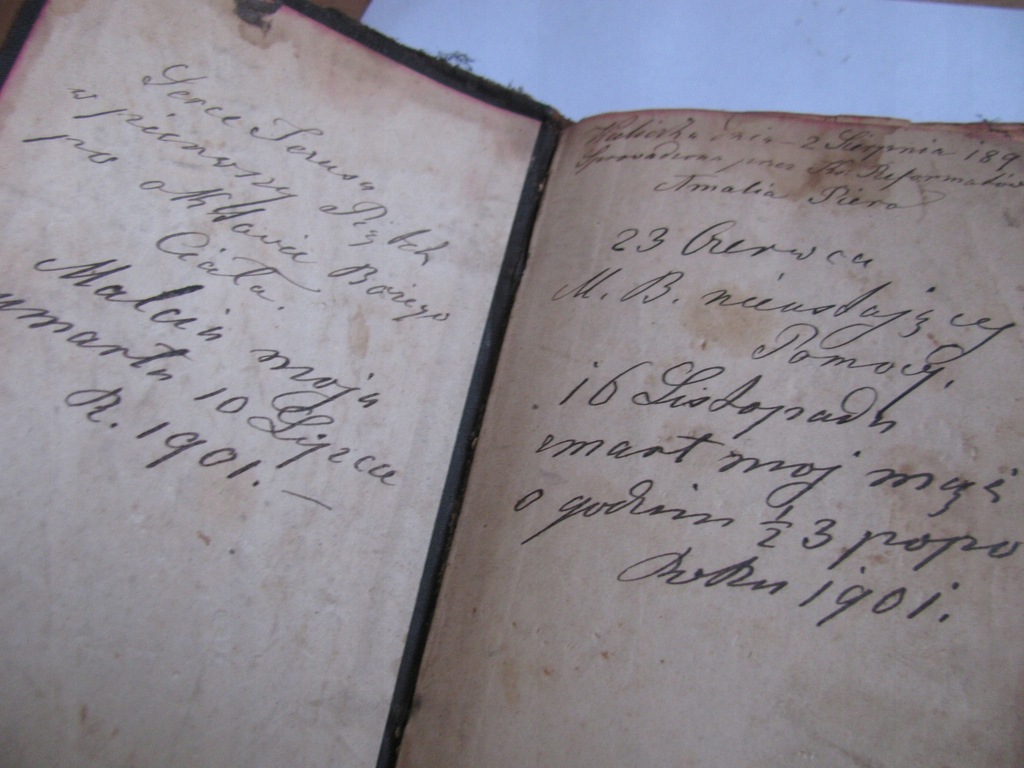 Serce Jezusa
w pierwszy Piątek
po oktavie Bożego
Ciała.
Malcia moja
umarła 10 Lipca
R. 1901. —
Wieliczka dnia 2 Sierpnia 189
Sprowadzona przez Reformatów
Amalia Piera
23 Czerwca
M. B. nieustającej
Pomocy.
16 Listopada
umart moj mąż
o godzini ½ 3 popo
Roku 1901.